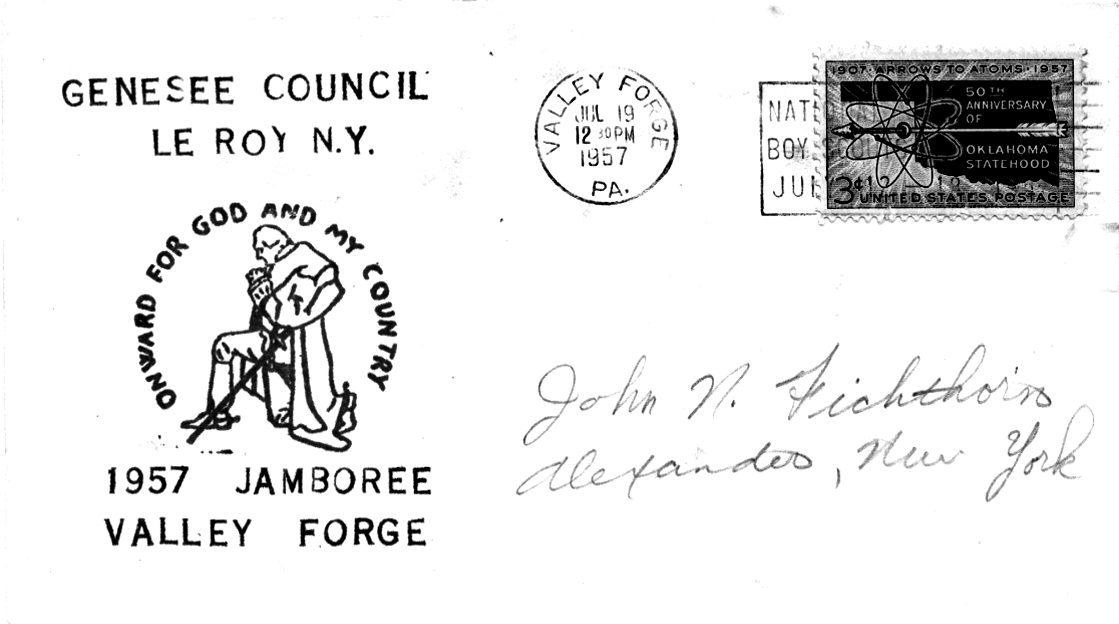 GENESEE COUNCIL
LE ROY N.Y.
ONWARD FOR GOD AND MY COUNTRY
1957 JAMBOREE
VALLEY FORGE
VALLEY FORGE
JUL 19
12 30 PM
1957
PA.
NATI
BOY
JUL
1907·ARROWS TO ATOMS·1957
50TH
ANNIVERSARY
OF
OKLAHOMA
STATEHOOD
3¢
UNITED STATES POSTAGE
John N. Fichthorn
Alexander, New York